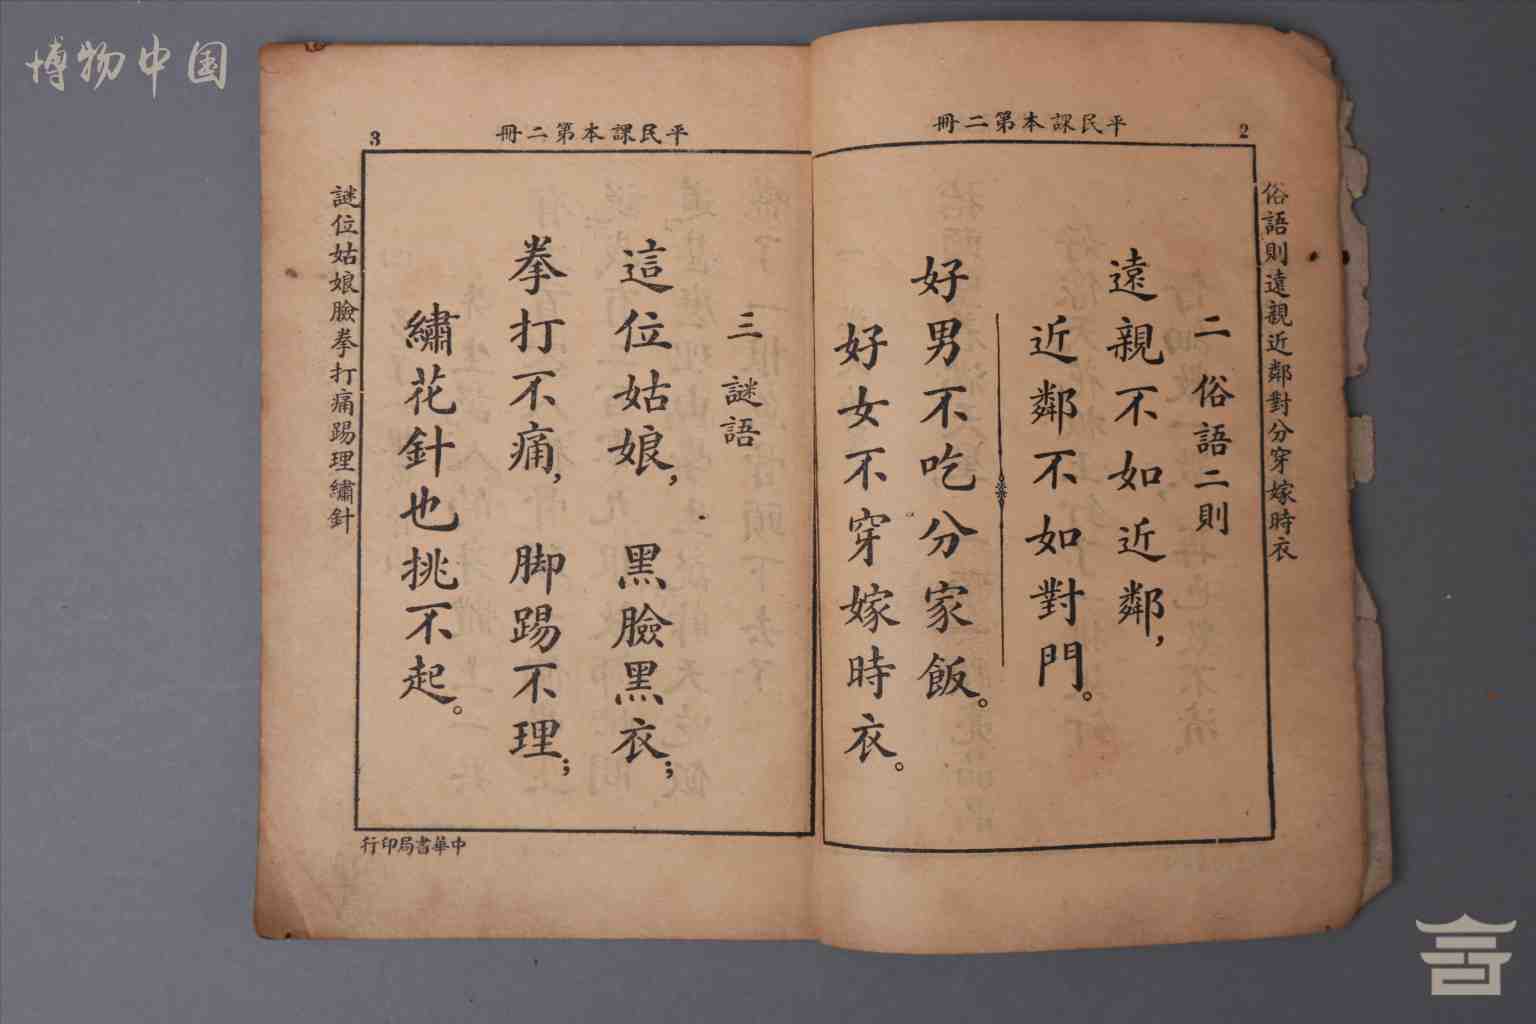 博物中国
平民課本第二冊
2
俗語則遠親近鄰對分穿嫁時衣
二 俗語二則
遠親不如近鄰，
近鄰不如對門。
好男不吃分家飯。
好女不穿嫁時衣。
平民課本第二冊
3
三 謎語
這位姑娘，黑臉黑衣；
拳打不痛，脚踢不理；
繡花針也挑不起。
謎位姑娘臉拳打痛踢理繡針
中華書局印行